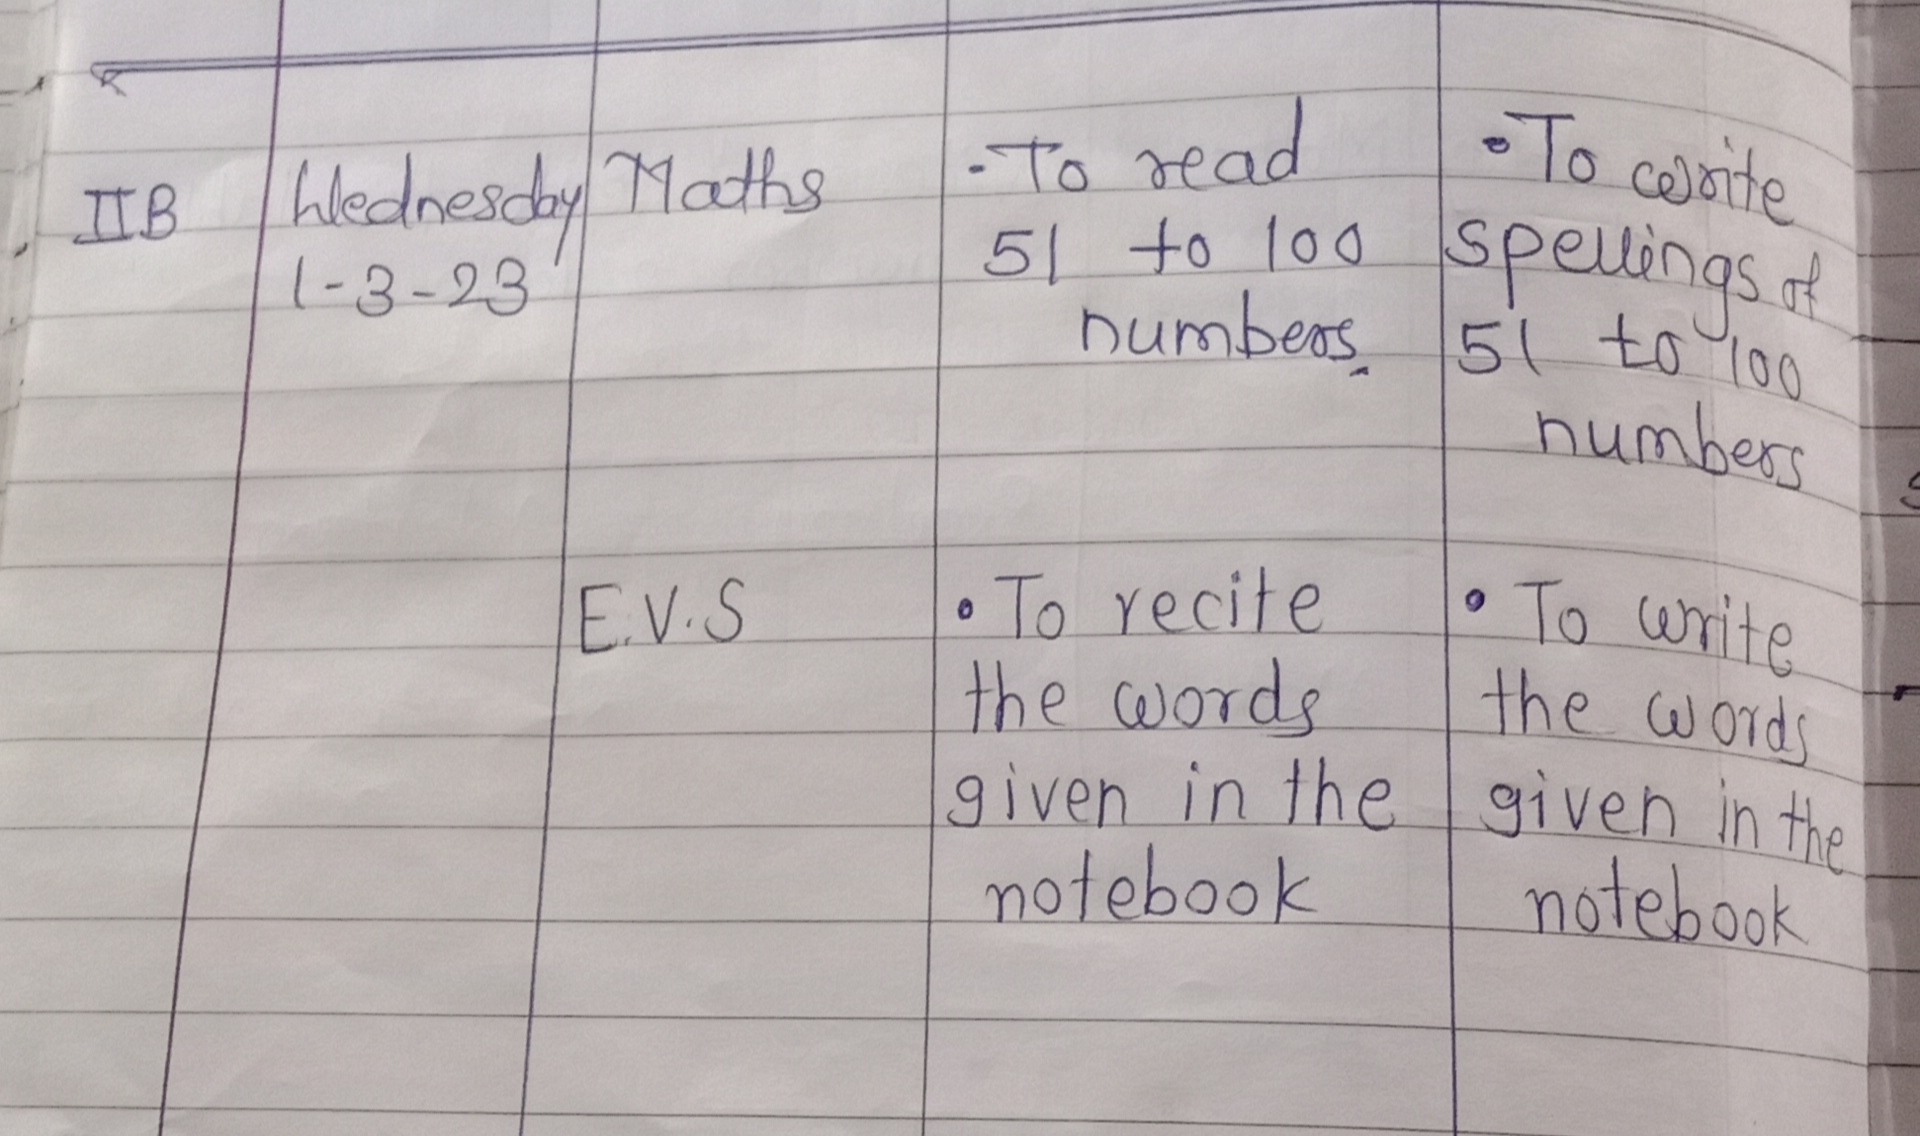 IIB Wednesday Maths - To read • To write
1-3-23 51 to 100 spellings of
numbers. 51 to 100
numbers
E.V.S • To recite • To write
the words the words
given in the given in the
notebook notebook